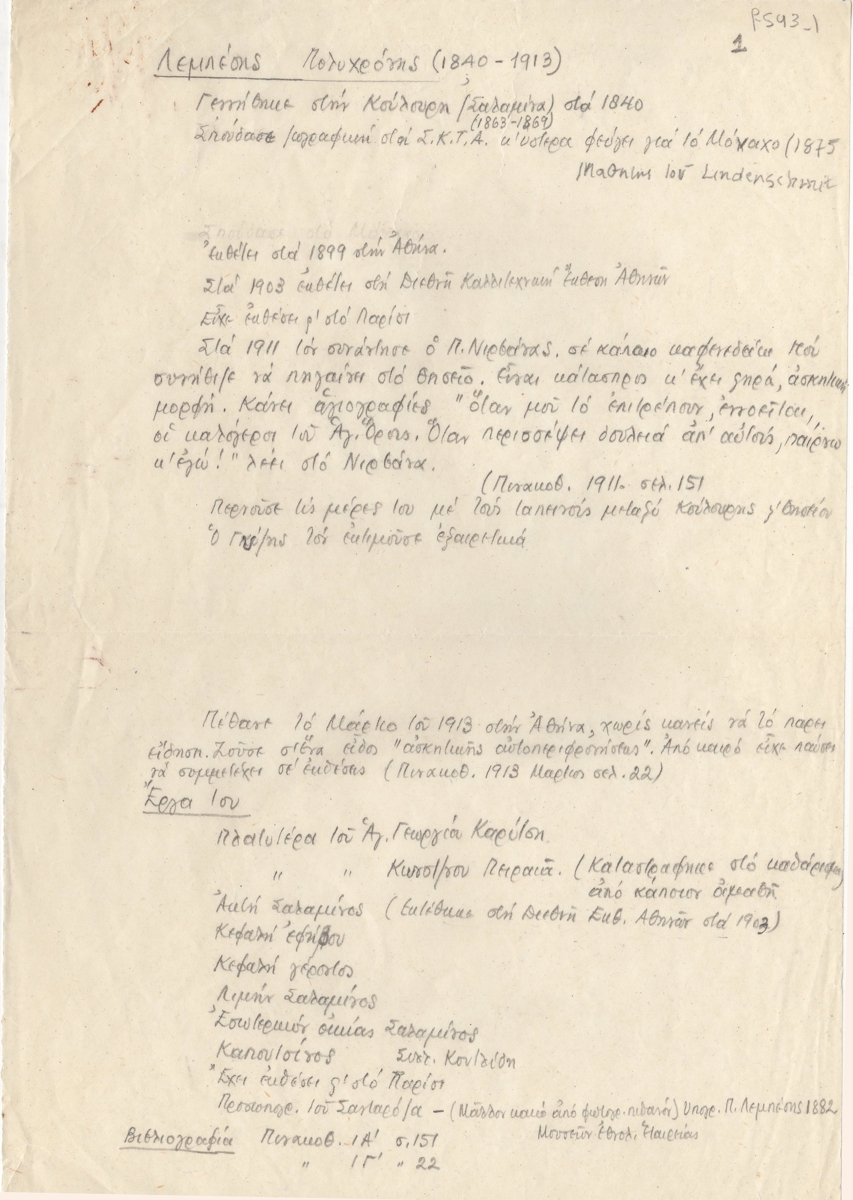 β543_1
1
Λεμπέσης Πολυχρόνης (1840-1913)
Γεννήθηκε στήν Κούλουρη (Σαλαμίνα) στά 1840
(1863-1869)
Σπούδασε ζωγραφική στή Σ.Κ.Τ.Α. κ' ύστερα φεύγει γιά τό Μόναχο (1875
Μαθητής τοῦ Lindenschmit
Ἐκθέτει στά 1899 στήν Ἀθήνα.
Στά 1903 ἐκθέτει στή Διεθνῆ Καλλιτεχνική Ἔκθεση Ἀθηνῶν
Εἶχε ἐκθέσει κ' στό Παρίσι
Στά 1911 τόν συνάντησε ὁ Π. Νιρβάνας, σέ κάποιο καφενεδάκι πού
συνήθιζε νά πηγαίνει στό Θησεῖο. Εἶναι κάτασπρος κ' ἔχει ξηρά, ἀσκητική
μορφή. Κάνει ἁγιογραφίες "Ὅταν μοῦ τό ἐπιτρέπουν, ἐννοεῖται,
οἱ καλόγεροι τοῦ Ἁγ. Ὄρους. Ὅταν περισσέψει δουλειά ἀπ' αὐτούς, παίρνω
κ' ἐγώ!" λέει στό Νιρβάνα.
(Πινακοθ. 1911- σελ. 151
Περνοῦσε τίς μέρες του μέ τούς ταπεινούς μεταξύ Κούλουρης κ' Θησείου
Ὁ Γκύζης τόν ἐκτιμοῦσε ἐξαιρετικά
Πέθανε τό Μάρτιο τοῦ 1913 στήν Ἀθήνα, χωρίς κανείς νά τό πάρει
εἴδηση. Ζοῦσε σ' ἕνα εἶδος "ἀσκητικῆς αὐτοπεριφρονήσεως". Ἀπό καιρό εἶχε παύσει
νά συμμετέχει σέ ἐκθέσεις (Πινακοθ. 1913 Μάρτιος σελ. 22)
Ἔργα του
Πλατυτέρα τοῦ Ἁγ. Γεωργίου Καρύτση
" " Κωνστ/νου Πειραιᾶ. (Καταστράφηκε στό καθάρισμα
ἀπό κάποιον ἀμαθῆ
Ἀκτή Σαλαμῖνος (Ἐκτέθηκε στή Διεθνῆ Ἐκθ. Ἀθηνῶν στά 1903)
Κεφαλή ἐφήβου
Κεφαλή γέροντος
Λιμήν Σαλαμῖνος
Ἐσωτερικόν οἰκίας Σαλαμῖνος
Καπουτσίνος Συλλ. Κουτλίδη
Ἔχει ἐκθέσει κ' στό Παρίσι
Προσωπογρ. τοῦ Σανταρόζα - (Μᾶλλον κακό ἀπό φωτογρ. πιθανόν) Ὑπογρ. Π. Λεμπέσης 1882
Μουσεῖον Ἐθνολ. Ἑταιρείας
Βιβλιογραφία Πινακοθ. ΙΑ' σ. 151
" ΙΓ' " 22